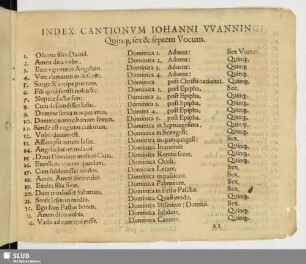 INDEX CANTIONVM IOHANNI VVANNINGI
Quinq, sex & septem Vocum.
1. Osanna filio David. Dominica 1. Aduent: Sex Vocum
2. Amen dico vobis, Dominica 2. Aduent: Quinq.
3. Ecce ego mitto Angelum. Dominica 3. Aduent: Quinq.
4. Vox clamantis in deserto. Dominica 4. Aduent: Quinq.
5. Surge & accipe puerum, Dominica post Christi natiuitat. Quinq.
6. Fili quid fecisti nobis sic. Dominica 1. post Epipha. Sex.
7. Nuptiæ factæ sunt. Dominica 2. post Epipha, Quinq.
8. Cum descendisset Iesus. Dominica 3. post Epipha, Sex.
9. Domine salva nos perimus. Dominica 4. post Epipha, Quinq.
10. Domine nonne bonum semen. Dominica 5. post Epipha, Quinq.
11. Simile est regnum cœlorum. Dominica in septuagesima. Quinq.
12. Vobis datum est. Dominica in Sexagesi: Quinq.
13. Assumpsit autem Iesus. Dominica in quinquagesi: Sex.
14. Dominica Inuocauit Quinq.
15. Dominica Reminiscere. Quinq.
16. Dominica Oculi, Quinq.
17. Cum sublevasset oculos. Dominica Lætare, Sex.
18. Amen, Amen dico vobis Dominica in passione. Sex.
19. Exulta filia Sion, Dominica Palmarum, Sex.
20. Dum transisset Sabbatum. Dominica in Festo Paschæ. Sex.
21. Dominica Quasimodo. Quinq.
22. Ego sum Pastor bonus, Dominica Misericor: Domini. Sex.
Amen dico vobis, Dominica Iubilate, Quinq.
Vado ad eum qui misit me. Dominica Cantate. Quinq.
SLUB